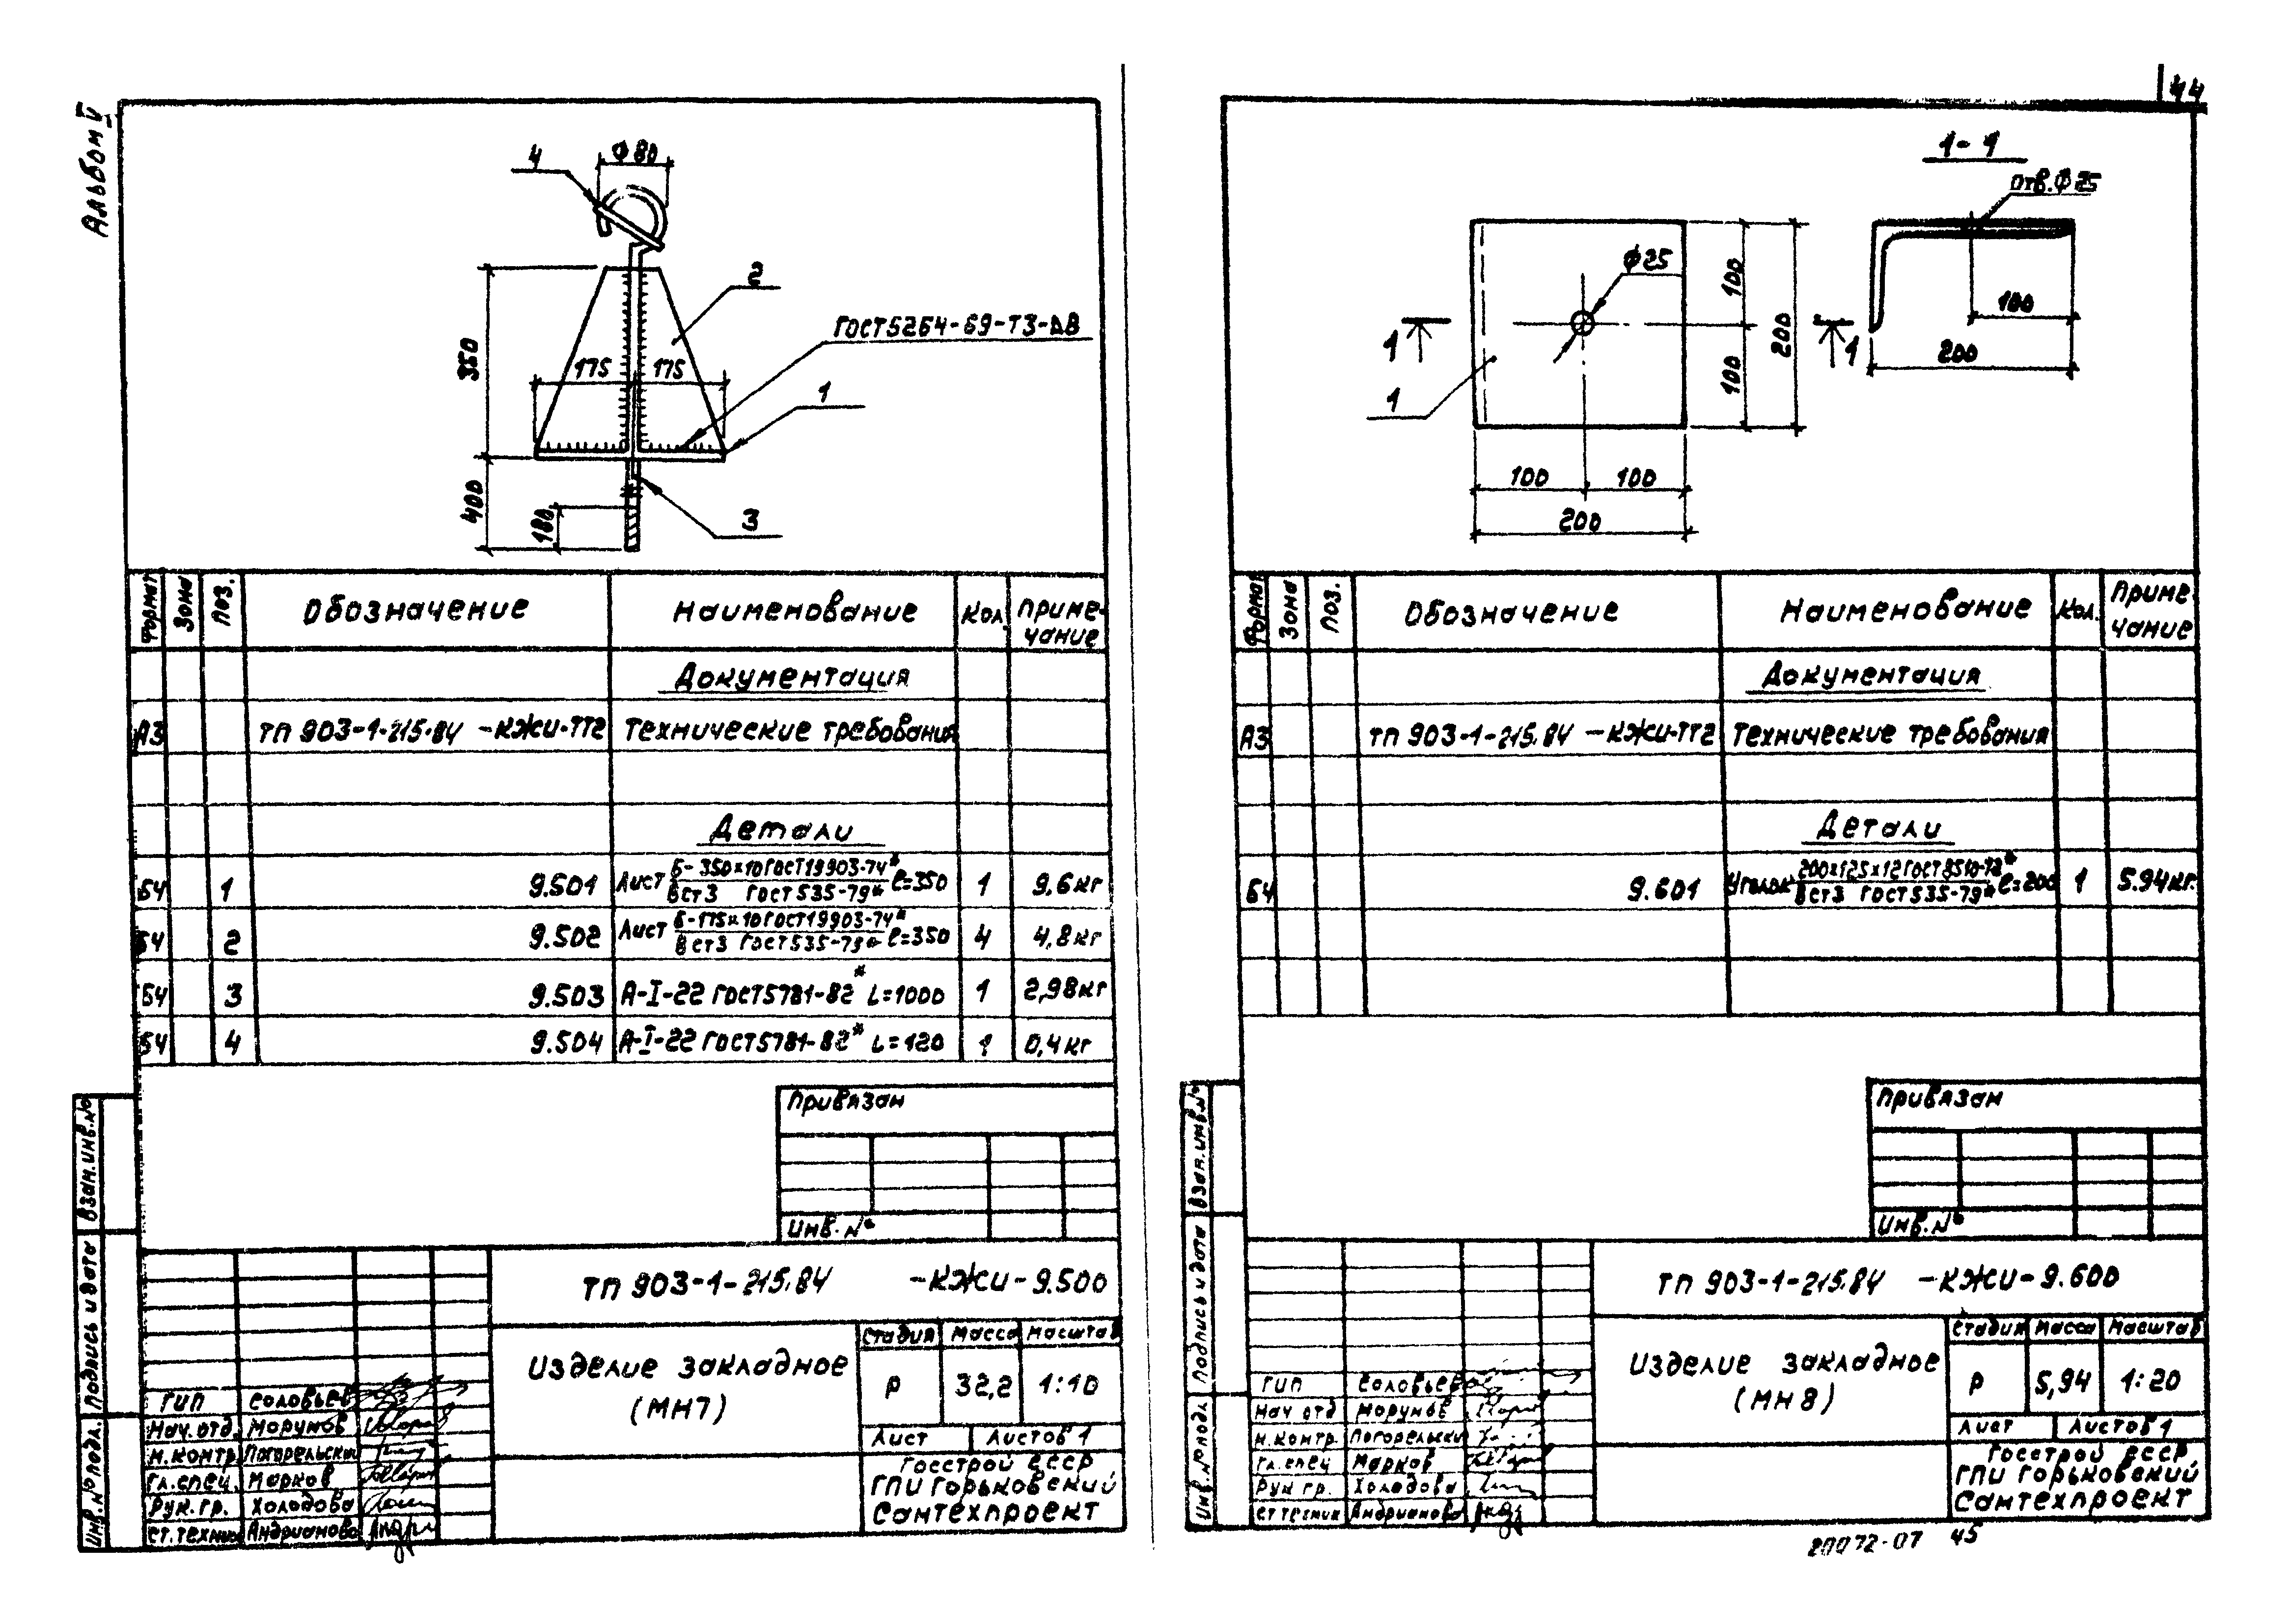 Альбом V
44
4
Ф 80
2
ГОСТ 5264-69-Т3-ΔВ
350
175
175
1
400
180
3
Формат
Зона
Поз.
Обозначение
Наименование
Кол.
Приме-
чание
Документация
А3 ТП 903-1-215.84 -КЖИ-ТТ2 Технические требования
Детали
Б4 1 9.501 Лист Б-350х10 ГОСТ 19903-74* / Вст3 ГОСТ 535-79* ℓ=350 1 9,6кг
Б4 2 9.502 Лист Б-175х10 ГОСТ 19903-74* / Вст3 ГОСТ 535-79* ℓ=350 4 4,8кг
Б4 3 9.503 А-I-22 ГОСТ 5781-82* L=1000 1 2,98кг
Б4 4 9.504 А-I-22 ГОСТ 5781-82* L=120 1 0,4кг
Привязан
Инв.№
Взам.инв.№
Подпись и дата
Инв.№ подл.
ТП 903-1-215.84 -КЖИ-9.500
Изделие закладное
(МН7)
Стадия Масса Масштаб
Р 32,2 1:10
Лист Листов 1
Госстрой СССР
ГПИ Горьковский
Сантехпроект
ГИП Соловьев
Нач.отд. Морунов
Н.контр. Погорельский
Гл.спец. Марков
Рук.гр. Холодова
Ст.техник Андрианова
1-1
Отв.Ф25
Ф25
100
200
100
1
1
1
100
200
100
100
200
Формат
Зона
Поз.
Обозначение
Наименование
Кол.
Приме-
чание
Документация
А3 ТП 903-1-215.84 -КЖИ-ТТ2 Технические требования
Детали
Б4 9.601 Уголок 200х125х12 ГОСТ 8510-72* / Вст3 ГОСТ 535-79* ℓ=200 1 5.94кг.
Привязан
Инв.№
Взам.инв.№
Подпись и дата
Инв.№ подл.
ТП 903-1-215.84 -КЖИ-9.600
Изделие закладное
(МН8)
Стадия Масса Масштаб
Р 5,94 1:20
Лист Листов 1
Госстрой СССР
ГПИ Горьковский
Сантехпроект
ГИП Соловьев
Нач отд Морунов
Н.контр. Погорельский
Гл.спец Марков
Рук гр. Холодова
Ст техник Андрианова
20072-07 45